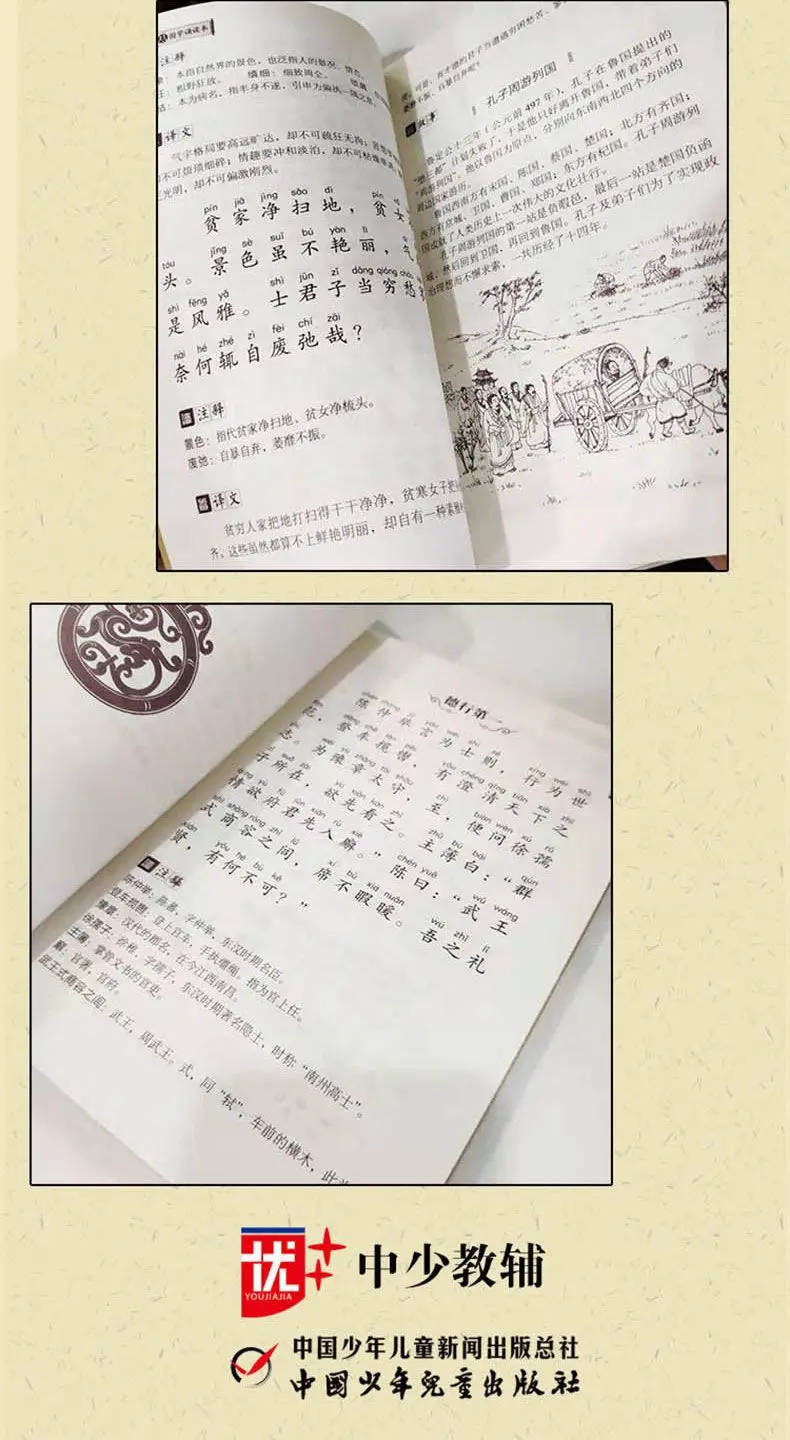 国学诵读本
注释
本指自然界的景色，也泛指人的景况、情态。
粗野狂放。 缜细：细致周全。
本为病名，指半身不遂，引申为偏执一隅之意。
译文
气宇格局要高远旷达，却不可疏狂无拘；
不可烦琐细碎；情趣要冲和淡泊，却不可枯燥
光明，却不可偏激刚烈。
pín jiā jìng sǎo dì pín
贫家净扫地，贫女
tóu jǐng sè suī bú yàn lì
头。景色虽不艳丽，气
shì fēng yǎ shì jūn zǐ dāng qióng chóu
是风雅。士君子当穷愁
nài hé zhé zì fèi chí zāi
奈何辄自废弛哉？
注释
景色：指代贫家净扫地、贫女净梳头。
废弛：自暴自弃，萎靡不振。
译文
贫穷人家把地打扫得干干净净，贫寒女子把
齐，这些虽然都算不上鲜艳明丽，却自有一种素雅
萎靡不振、自暴自弃呢？
故事
孔子周游列国
鲁定公十三年（公元前497年），孔子在鲁国提出的
“堕三都”计划失败了，于是他只好离开鲁国，带着弟子们
“周游列国”。他以鲁国为原点，分别向东南西北四个方向的
周边国家游历。
鲁国西南方有宋国、陈国、蔡国、楚国；北方有齐国；
西方有京城、卫国、曹国、郑国；东方有杞国。孔子周游列
国成就了人类历史上一次伟大的文化壮行。
孔子周游列国的第一站是负瑕邑，最后一站是楚国负函
城，然后回到卫国，再回到鲁国。孔子及弟子们为了实现政
治理想而不懈求索，一共历经了十四年。
德行第一
chén zhòng jǔ yán wéi shì zé xíng wéi shì
陈仲举言为士则，行为世
fàn dēng chē lǎn pèi yǒu chéng qīng tiān xià zhī
范，登车揽辔，有澄清天下之
zhì wéi yù zhāng tài shǒu zhì biàn wèn xú rú
志。为豫章太守，至，便问徐孺
zǐ suǒ zài yù xiān kàn zhī zhǔ bù bái qún
子所在，欲先看之。主簿白：“群
qíng yù fǔ jūn xiān rù xiè chén yuē wǔ wáng
情欲府君先入廨。”陈曰：“武王
shì shāng róng zhī lǘ xí bù xiá nuǎn wú zhī lǐ
式商容之闾，席不暇暖。吾之礼
xián yǒu hé bù kě
贤，有何不可？”
注释
陈仲举：陈蕃，字仲举，东汉时期名臣。
登车揽辔：登上官车，手执缰绳。指为官上任。
豫章：汉代的郡名，在今江西南昌。
徐孺子：徐稚，字孺子，东汉时期著名隐士，时称“南州高士”。
主簿：掌管文书的官吏。
廨：官署，官府。
武王式商容之闾：武王，周武王。式，同“轼”，车前的横木，此
优
YOUJIAJIA
中少教辅
中国少年儿童新闻出版总社
中國少年兒童出版社